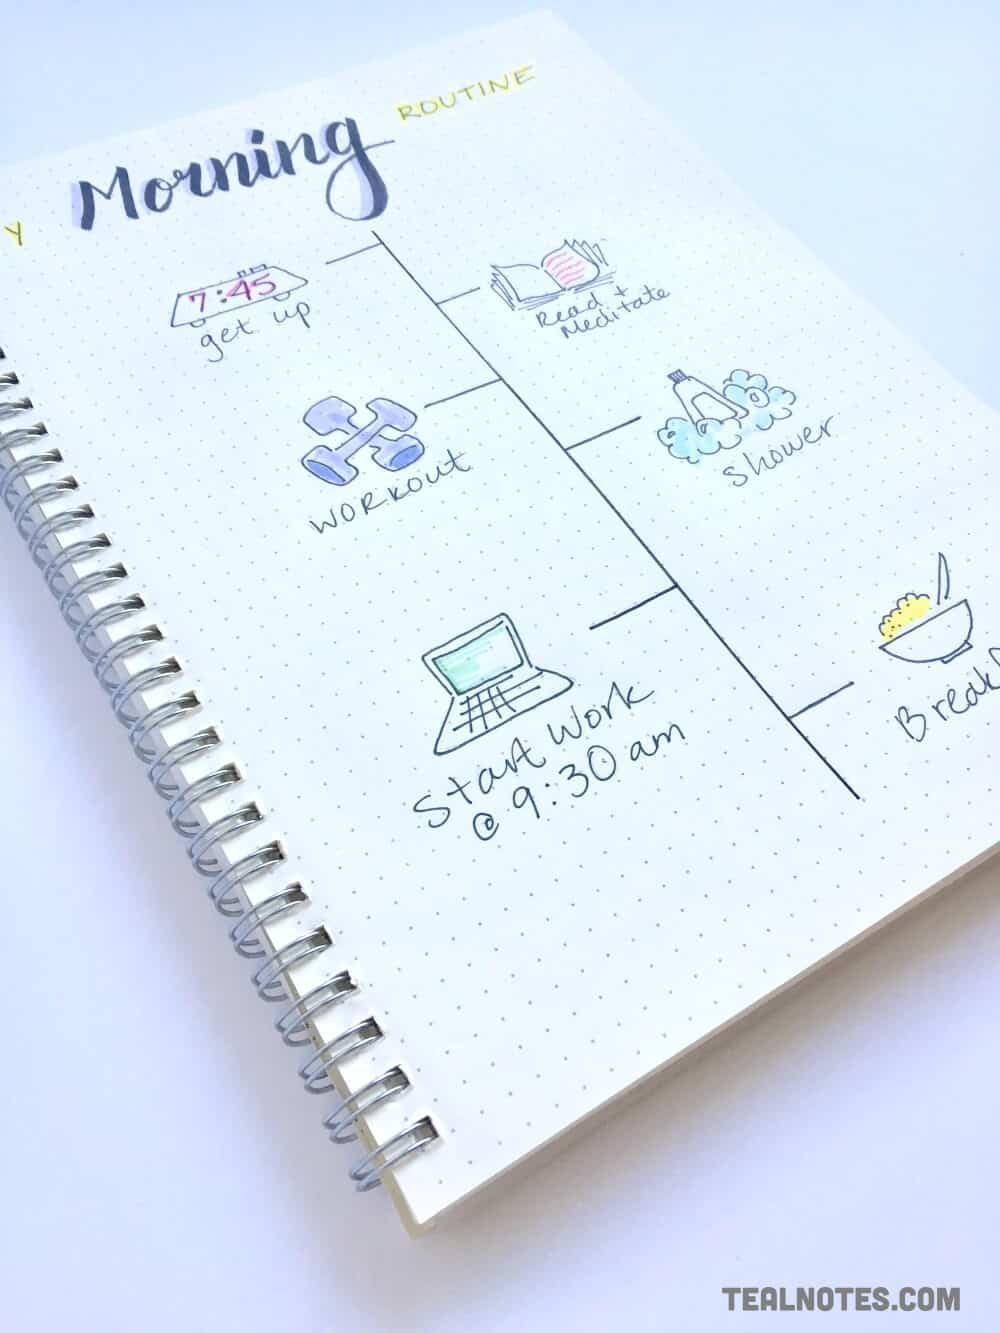 Y
Morning
ROUTINE
7:45
get up
Read +
Meditate
WORKOUT
Shower
Start Work
@ 9:30 am
TEALNOTES.COM